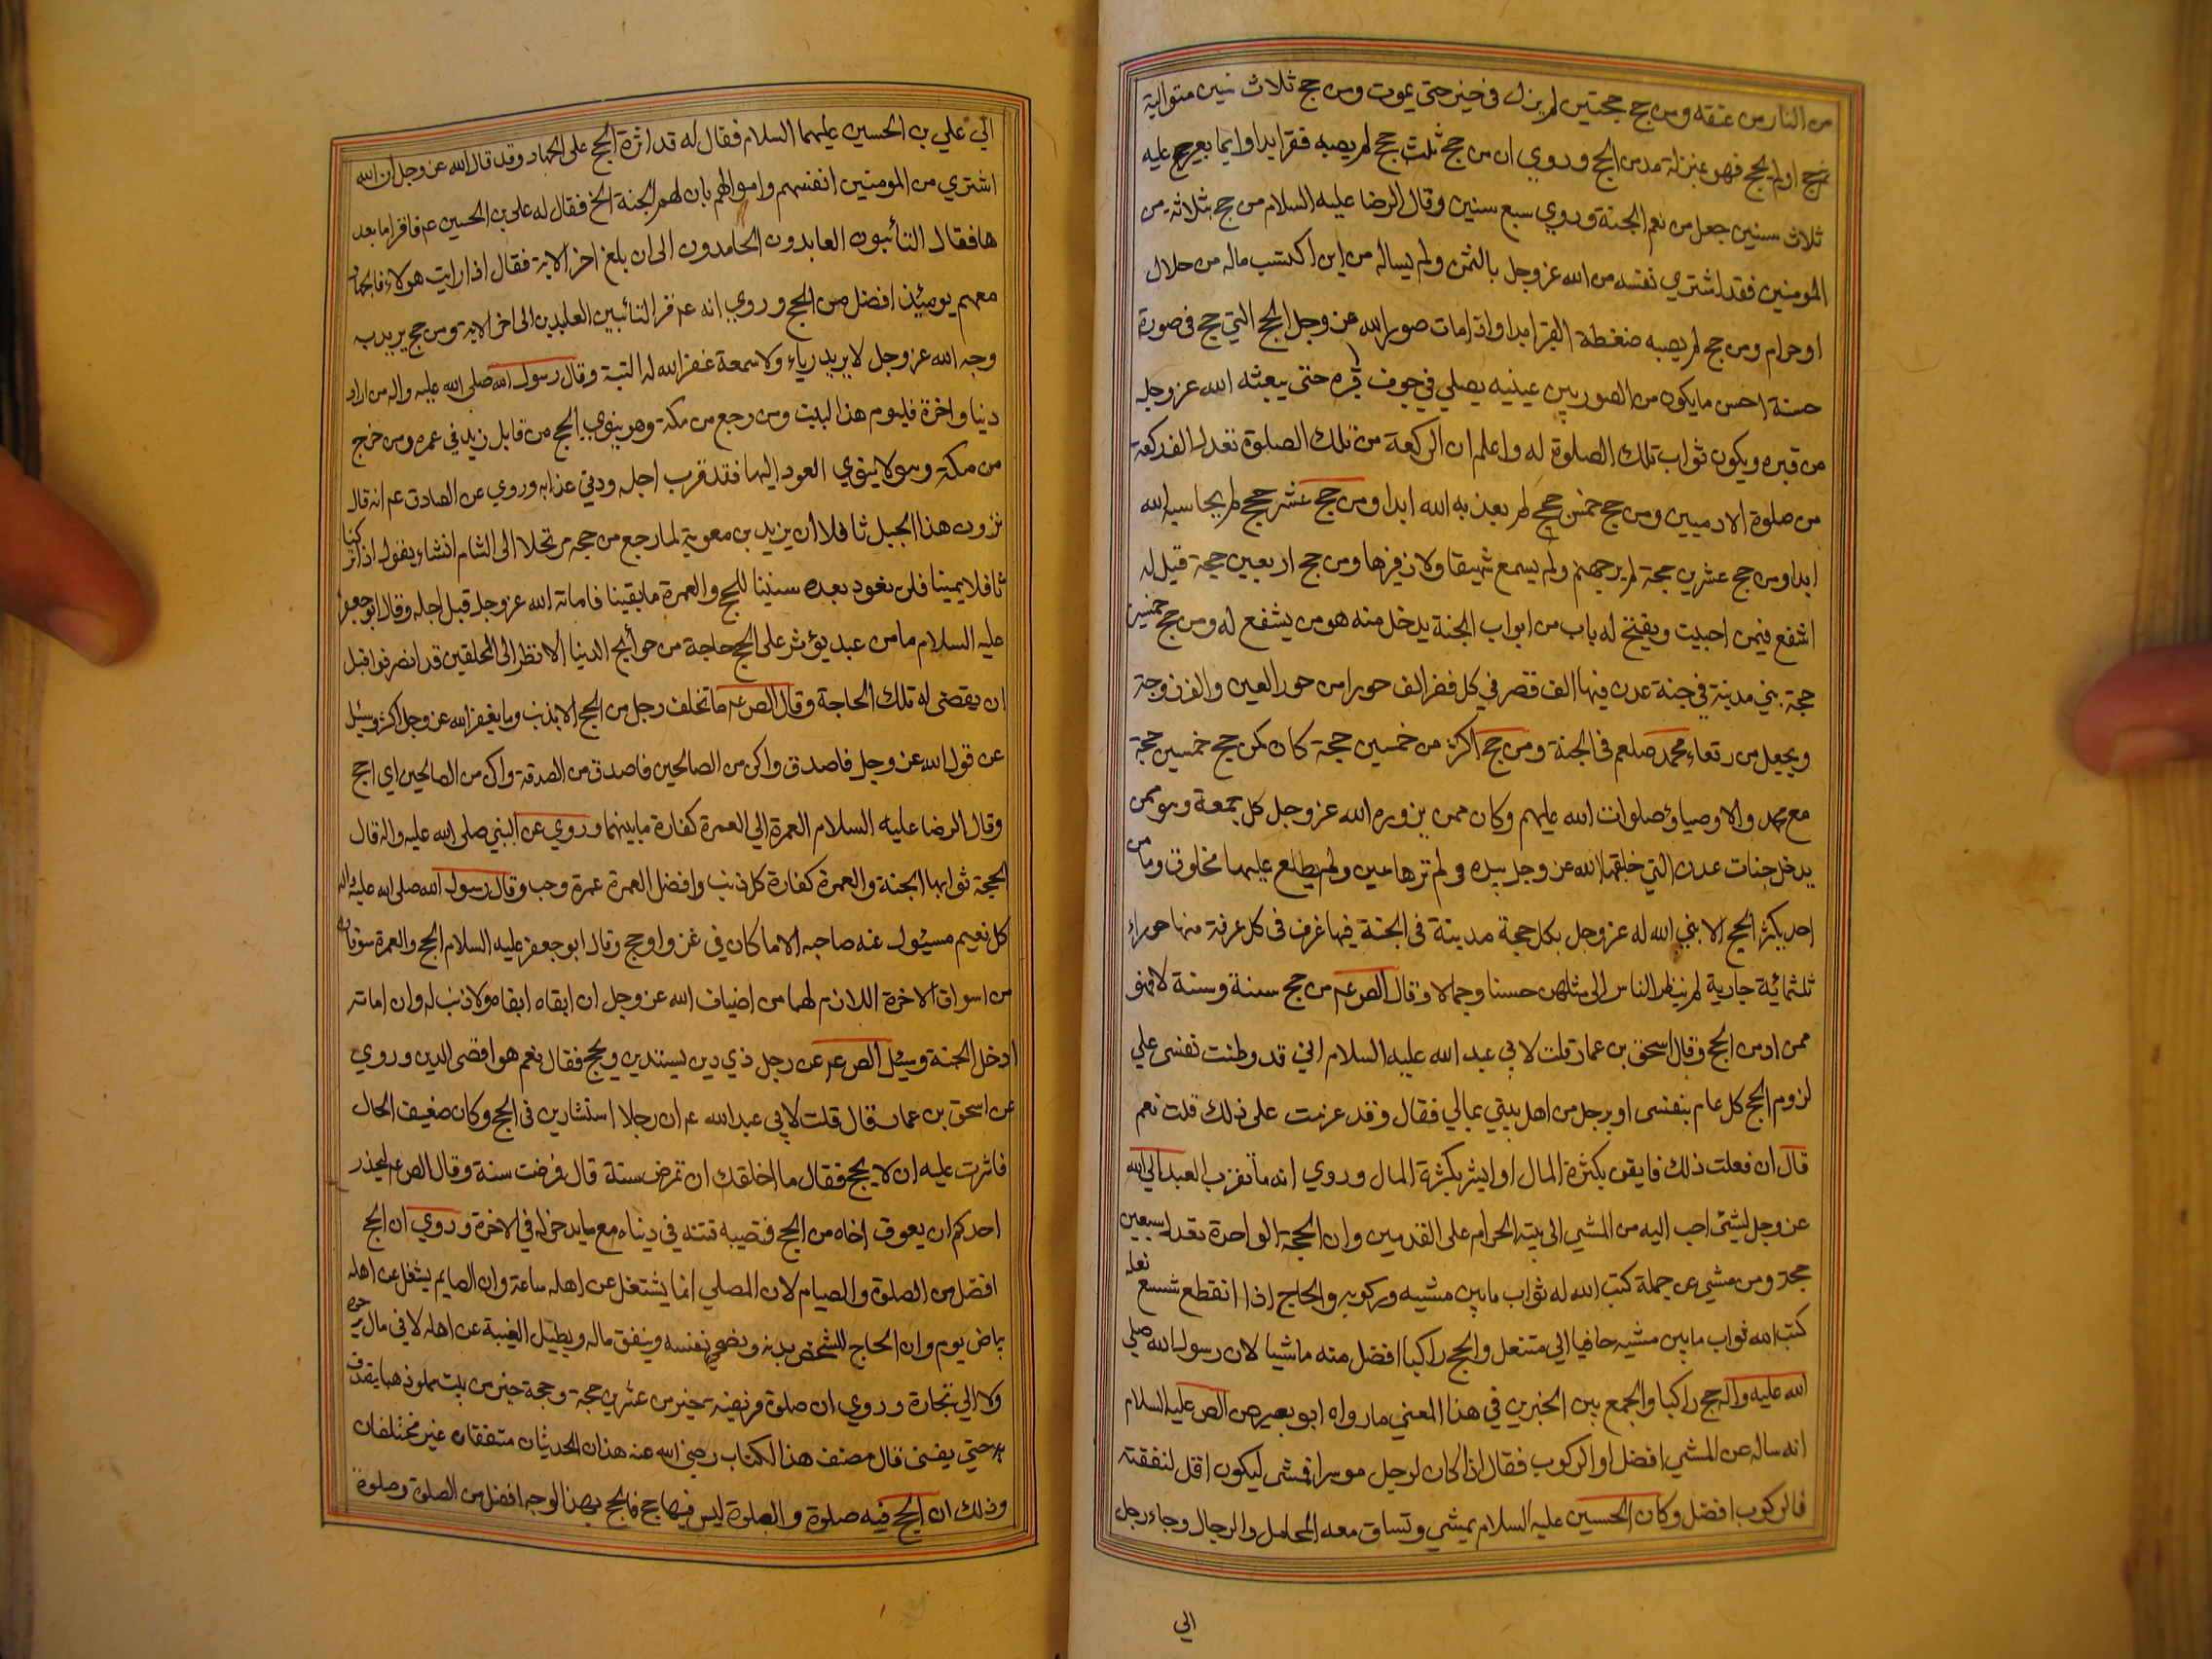 من النار من عنقه ومن حج حجتين لم يزل في خير حتى يموت ومن حج ثلاث سنين متوالية
حج او لم يحج فهو بمنزلة مدمن الحج وروي ان من حج ثلث حجج لم يصبه فقر ابدا وايما بعير حج عليه
ثلاث سنين جعل من نعم الجنة وروي سبع سنين وقال الرضا عليه السلام من حج بثلاثة من
المومنين فقد اشتري نفسه من الله عز وجل بالثمن ولم يساله من اين اكتسب ماله من حلال
او حرام ومن حج لم يصبه ضغطة القبر ابدا واذا مات صور الله عز وجل الحج التي حج في صورة
حسنة احسن ما يكون من الصور بين عينيه يصلي في جوف قبره حتى يبعثه الله عز وجل
من قبره ويكون ثواب تلك الصلوة له واعلم ان الركعة من تلك الصلوة تعدل الف ركعة
من صلوة الادميين ومن حج خمس حجج لم يعذبه الله ابدا ومن حج عشر حجج لم يحاسبه الله
ابدا ومن حج عشرين حجة لم ير جهنم ولم يسمع شهيقا ولا زفيرها ومن حج اربعين حجة قيل له
اشفع فيمن احببت ويفتح له باب من ابواب الجنة يدخل منه هو من يشفع له ومن حج خمسين
حجة بني مدينة في جنة عدن فيها الف قصر في كل قصر الف حورا من حور العين والف زوجة
ويجعل من رفقاء محمد صلعم في الجنة ومن حج اكثر من خمسين حجة كان كمن حج خمسين حجة
مع محمد والاوصياؤ صلوات الله عليهم وكان ممن يزوره الله عز وجل كل جمعة وهو ممن
يدخل جنات عدن التي خلقها الله عز وجل بيده ولم ترها عين ولم يطلع عليها مخلوق وما من
احد يكثر الحج الا بني الله له عز وجل بكل حجة مدينة في الجنة فيها غرف في كل غرفة منها حوراء
ثلثمائية جارية لم ينظر الناس الى مثلهن حسنا وجمالا وقال الص عم من حج سنة وسنة لا فهو
ممن ادمن الحج وقال اسحق بن عمار قلت لابي عبد الله عليه السلام اني قد وطنت نفسى علي
لزوم الحج كل عام بنفسى او برجل من اهل بيتي بمالي فقال وقد عزمت على ذلك قلت نعم
قال ان فعلت ذلك فايقن بكثرة المال او ابشر بكثرة المال وروي انه ما تقرب العبد الي الله
عز وجل بشئ احب اليه من المشي الى بيته الحرام على القدمين وان الحجة الواحدة تعدل سبعين
حجة ومن مشي عن جملة كتب الله له ثواب ما بين مشيه وركوبه والحاج اذا انقطع شسع نعله
كتب الله ثواب ما بين مشيه حافيا الي متنعل والحج راكبا افضل منه ماشيا لان رسول الله صلي
الله عليه واله حج راكبا والجمع بين الخبرين في هذا المعني ما رواه ابو بصير عن الص عليه السلام
انه ساله عن المشي افضل او الركوب فقال اذا كان الرجل موسرا فمشى ليكون اقل لنفقته
فالركوب افضل وكان الحسين عليه السلام يمشي وتساق معه المحامل والرحال وجاء رجل
الي
الي علي بن الحسين عليهما السلام فقال له قد اثرة الحج على الجهاد وقد قال الله عز وجل ان الله
اشتري من المومنين انفسهم واموالهم بان لهم الجنة الخ فقال له على بن الحسين عم فاقرا ما بعد
ها فقال التائبون العابدون الحامدون الى ان بلغ اخر الاية فقال اذا رايت هولاء فالجهاد
معهم يومئذ افضل من الحج وروي انه عم قرا التائبين العابدين الى اخر الاية ومن حج يريد به
وجه الله عز وجل لا يريد رياء ولا سمعة غفر الله له البتة وقال رسول الله صلى الله عليه واله من اراد
دنيا واخرة فليوم هذا البيت ومن رجع من مكة وهو ينوي الحج من قابل زيد في عمره ومن خرج
من مكة وهو لا ينوي العود اليها فقد قرب اجله ودني عذابه وروي عن الصادق عم انه قال
ترون هذا الجبل ثافلا ان يزيد بن معوية لما رجع من حجه مرتحلا الى الشام انشاء يقول اذا تركنا
ثافلا يمينا فلن نعود بعده سنينا للحج والعمرة ما بقينا فاماته الله عز وجل قبل اجله وقال ابو جعفر
عليه السلام ما من عبد يؤثر على الحج حاجة من حوائج الدنيا الا نظر الى المحلقين قد انصرفوا قبل
ان يقضى له تلك الحاجة وقال الص عم ما تخلف رجل من الحج الا بذنب وما يغفر الله عز وجل اكثر وسئل
عن قول الله عز وجل فاصدق واكن من الصالحين فاصدق من الصدقة واكن من الصالحين اي احج
وقال الرضا عليه السلام العمرة الي العمرة كفارة ما بينهما وروي عن النبي صلى الله عليه واله قال
الحجة ثوابها الجنة والعمرة كفارة كل ذنب وافضل العمرة عمرة رجب وقال رسول الله صلى الله عليه واله
كل نعيم مسئول عنه صاحبه الا ما كان في غزو او حج وقال ابو جعفر عليه السلام الحج والعمرة سوقان
من اسواق الاخرة اللازم لهما من اضياف الله عز وجل ان ابقاه ابقاه ولا ذنب له وان اماته
ادخل الجنة وسئل الص عم عن رجل ذي دين يستدين ويحج فقال نعم هو اقضى الدين وروي
عن اسحق بن عمار قال قلت لابي عبد الله عم ان رجلا استشارني في الحج وكان ضعيف الحال
فاشرت عليه ان لا يحج فقال ما اخلقك ان تمرض سنة قال فمرضت سنة وقال الص عم ليحذر
احدكم ان يعوق اخاه من الحج فتصيبه فتنة في دنياه مع ما يدخر له في الاخرة وروي ان الحج
افضل من الصلوة والصيام لان المصلي انما يشتغل عن اهله ساعة وان الصايم يشغل عن اهله
بياض يوم وان الحاج للشخص بدنه ويضحي نفسه وينفق ماله ويطيل الغيبة عن اهله لا في مال يرجوه
ولا الي تجارة وروي ان صلوة فريضة خير من عشرين حجة وحجة خير من بيت مملو ذهبا يتصدق
به حتي يفنى قال مصنف هذا الكتاب رضي الله عنه هذان الحديثان متفقان غير مختلفان
وذلك ان الحج فيه صلوة والصلوة ليس فيها حج فالحج بهذا الوجه افضل من الصلوة وصلوة